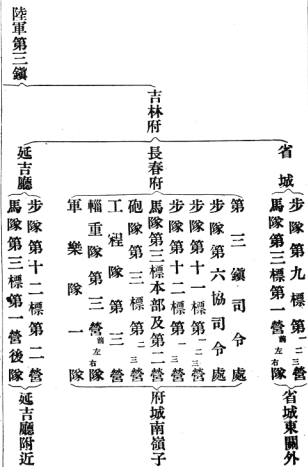 陸軍第三鎭
吉林府
省城
步隊第九標第一二三營
馬隊第三標第一營前左右隊
省城東關外
長春府
第三鎭司令處
步隊第六協司令處
步隊第十一標第一二三營
步隊第十二標第一三營
馬隊第三標本部及第二營
砲隊第三標第二三營
工程隊第三營
輜重隊第三營前左右隊
軍樂隊一隊
府城南嶺子
延吉廳
步隊第十二標第二營
馬隊第三標第一營後隊
延吉廳附近